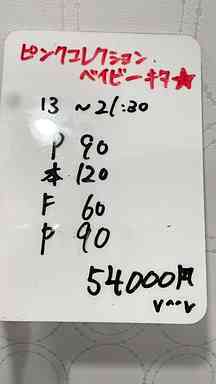 ピンクコレクション
ベイビーキター★
13 ~21:30
P 90
本 120
F 60
P 90
54000円